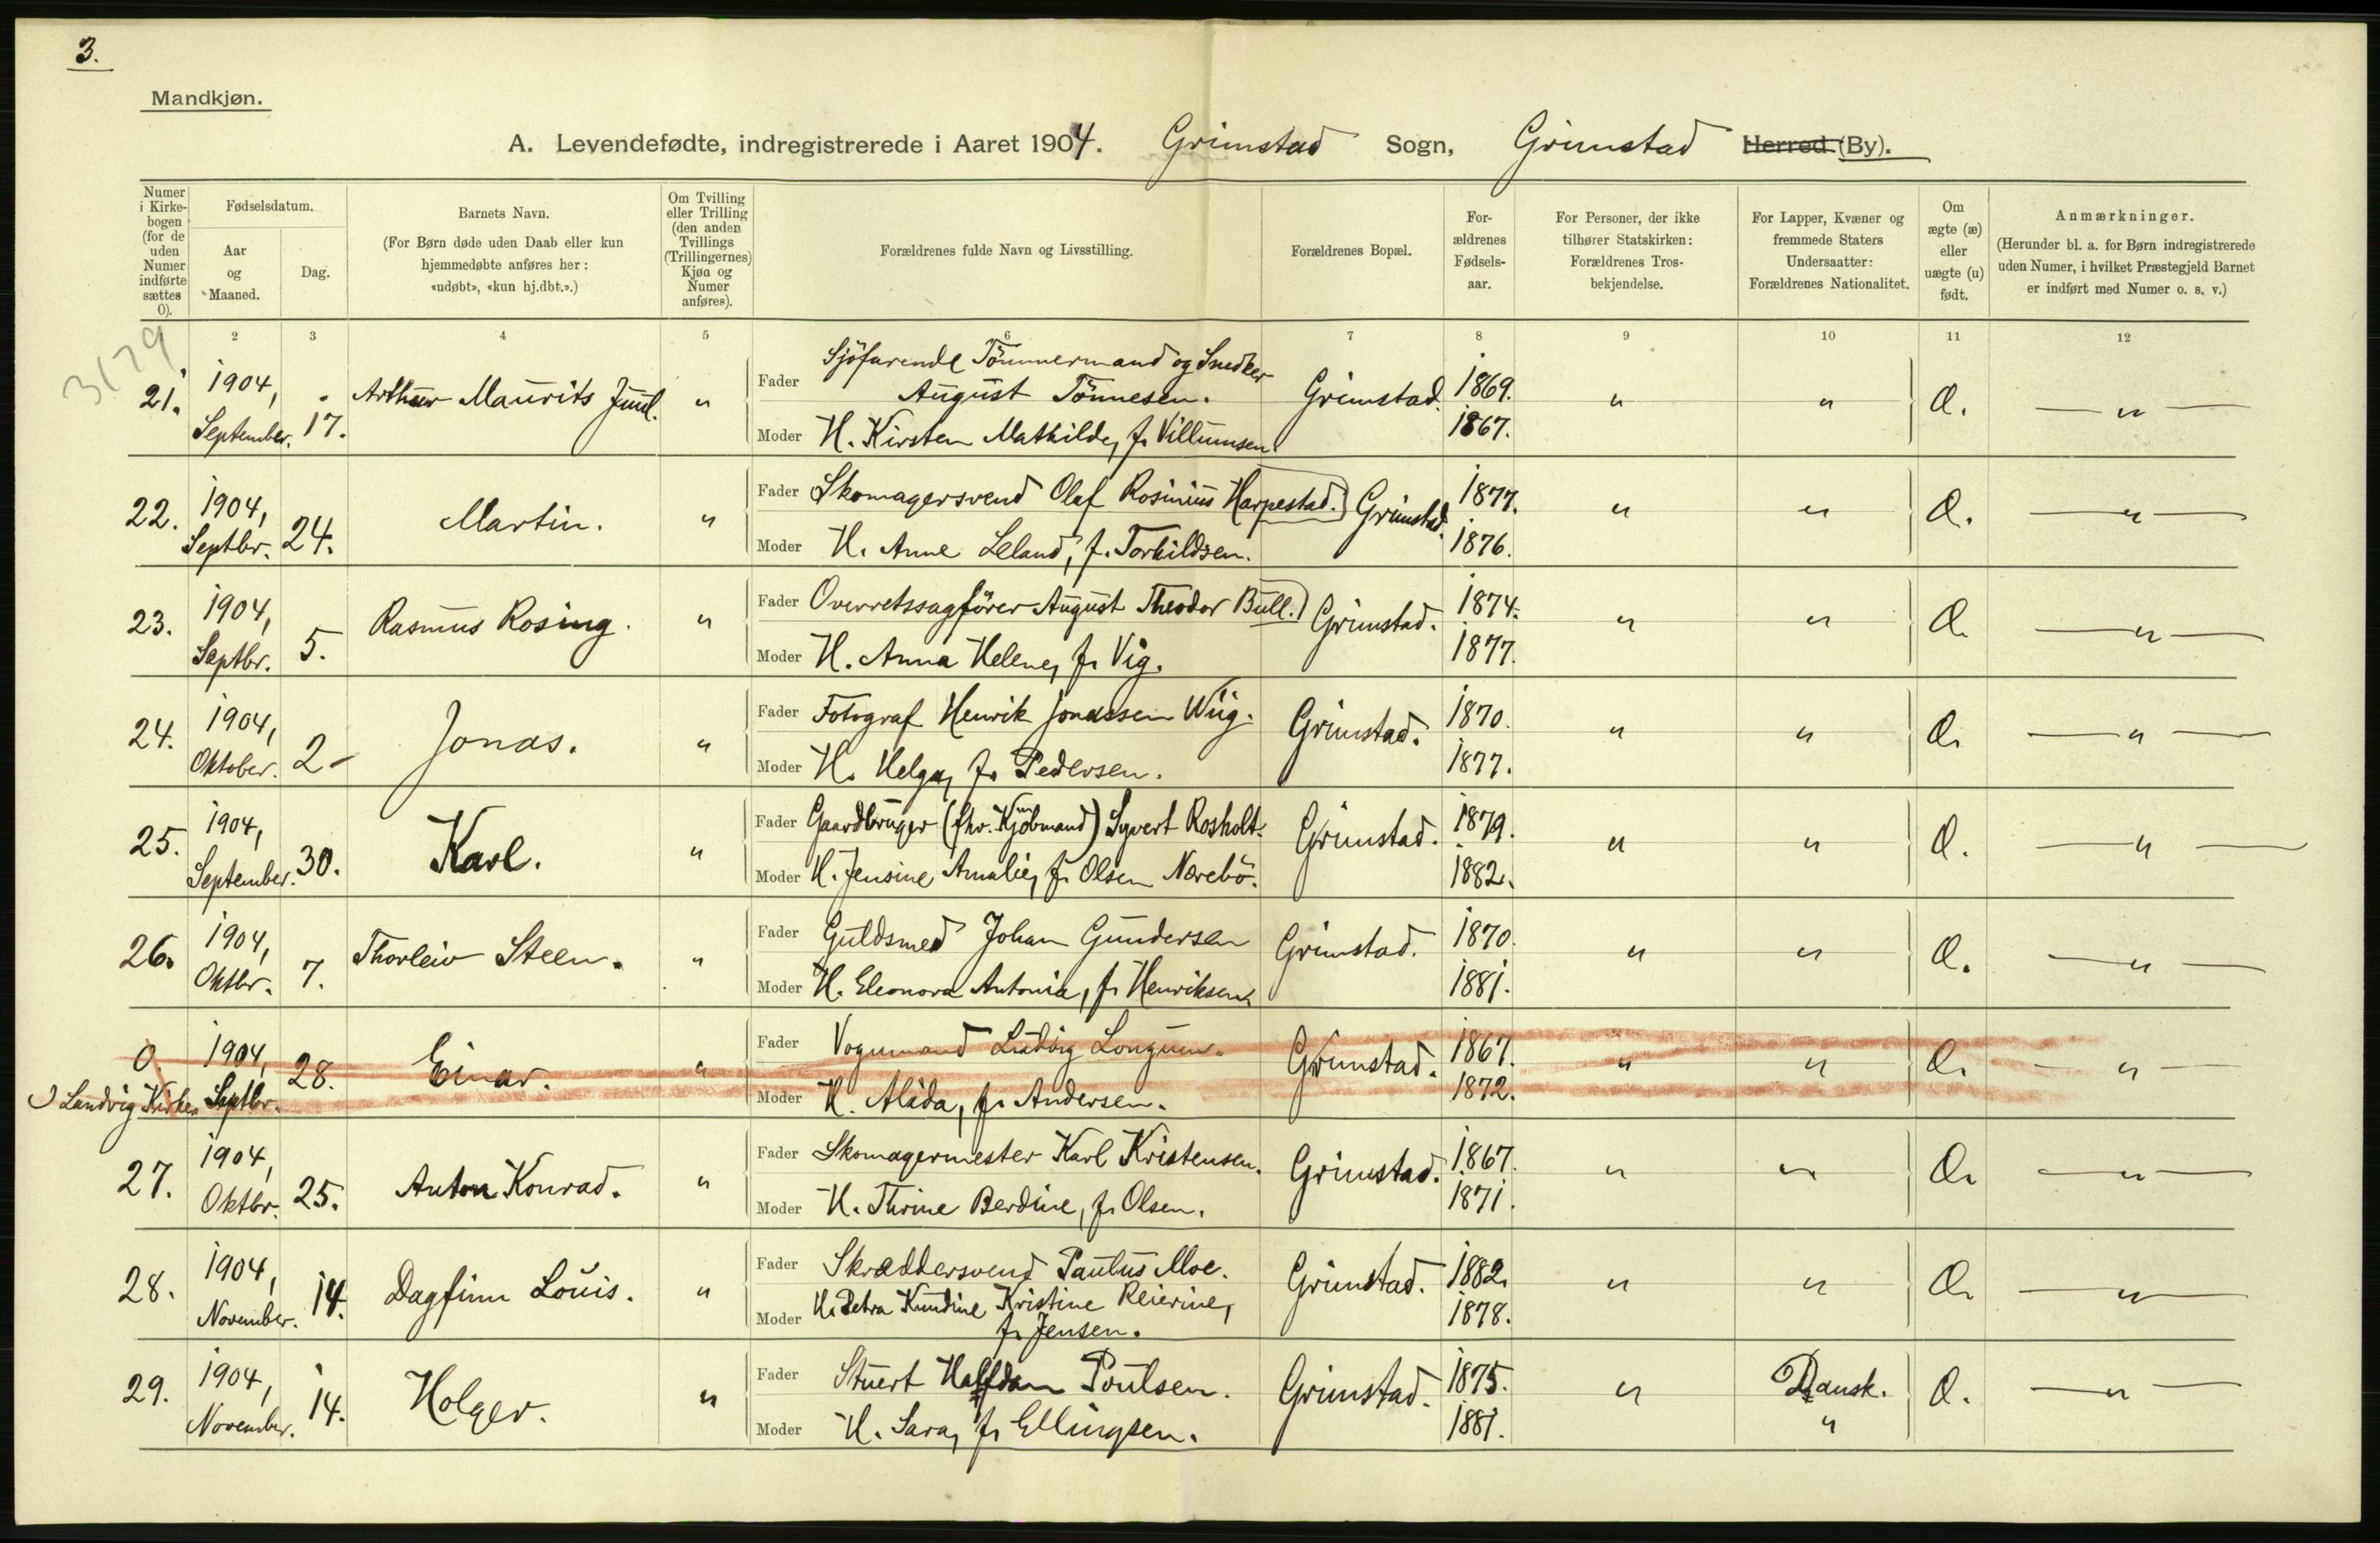 3.
Mandkjøn.
A. Levendefødte, indregistrerede i Aaret 1904. Grimstad Sogn, Grimstad Herred (By).
Numer i Kirke-bogen (for de uden Numer indførte sættes 0).
Fødselsdatum.
Aar og Maaned.
Dag.
Barnets Navn.
(For Børn døde uden Daab eller kun hjemmedøbte anføres her: «udøbt», «kun hj.dbt.».)
Om Tvilling eller Trilling (den anden Tvillings (Trillingernes) Kjøn og Numer anføres).
Forældrenes fulde Navn og Livsstilling.
Forældrenes Bopæl.
For-ældrenes Fødsels-aar.
For Personer, der ikke tilhører Statskirken: Forældrenes Tros-bekjendelse.
For Lapper, Kvæner og fremmede Staters Undersaatter: Forældrenes Nationalitet.
Om ægte (æ) eller uægte (u) født.
Anmærkninger.
(Herunder bl. a. for Børn indregistrerede uden Numer, i hvilket Præstegjeld Barnet er indført med Numer o. s. v.)
2 3 4 5 6 7 8 9 10 11 12
3179
21. 1904, September. 17. Arthur Maurits Juul. " Fader Sjöfarende Tömmermand og Snedker August Tönnesen. Grimstad. 1869. " " Æ. — " —
Moder H. Kirsten Mathilde, f. Villumsen. 1867.
22. 1904, Septbr. 24. Martin. " Fader Skomagersvend Olaf Rosinius Harpestad. Grimstad. 1877. " " Æ. — " —
Moder H. Anne Leland, f. Torkildsen. 1876.
23. 1904, Septbr. 5. Rasmus Rosing. " Fader Overretssagförer August Theodor Bull. Grimstad. 1874. " " Æ. — " —
Moder H. Anna Helene, f. Vig. 1877.
24. 1904, Oktober. 2 Jonas. " Fader Fotograf Henrik Jonassen Wiig. Grimstad. 1870. " " Æ. — " —
Moder H. Helga, f. Pedersen. 1877.
25. 1904, September. 30. Karl. " Fader Gaardbruger (fhv. Kjöbmand) Syvert Rosholt. Grimstad. 1879. " " Æ. — " —
Moder H. Jensine Amalie, f. Olsen Nærebö. 1882.
26. 1904, Oktbr. 7. Thorleiv Steen. " Fader Guldsmed Johan Gundersen Grimstad. 1870. " " Æ. — " —
Moder H. Eleonora Antonia, f. Henriksen. 1881.
0 1904, Septbr. 28. Einar. " Fader Vognmand Ludvig Longum. Grimstad. 1867. " " Æ. — " —
Landvig Kirke. Moder H. Alida, f. Andersen. 1872.
27. 1904, Oktbr. 25. Anton Konrad. " Fader Skomagermester Karl Kristensen. Grimstad. 1867. " " Æ. — " —
Moder H. Thrine Berdine, f. Olsen. 1871.
28. 1904, November. 14. Dagfinn Louis. " Fader Skræddersvend Paulus Moe. Grimstad. 1882. " " Æ. — " —
Moder H. Petra Kundine Kristine Reierine, f. Jensen. 1878.
29. 1904, November. 14. Holger. " Fader Stuert Halfdan Poulsen. Grimstad. 1875. " Dansk. Æ. — " —
Moder H. Sara, f. Ellingsen. 1881. "